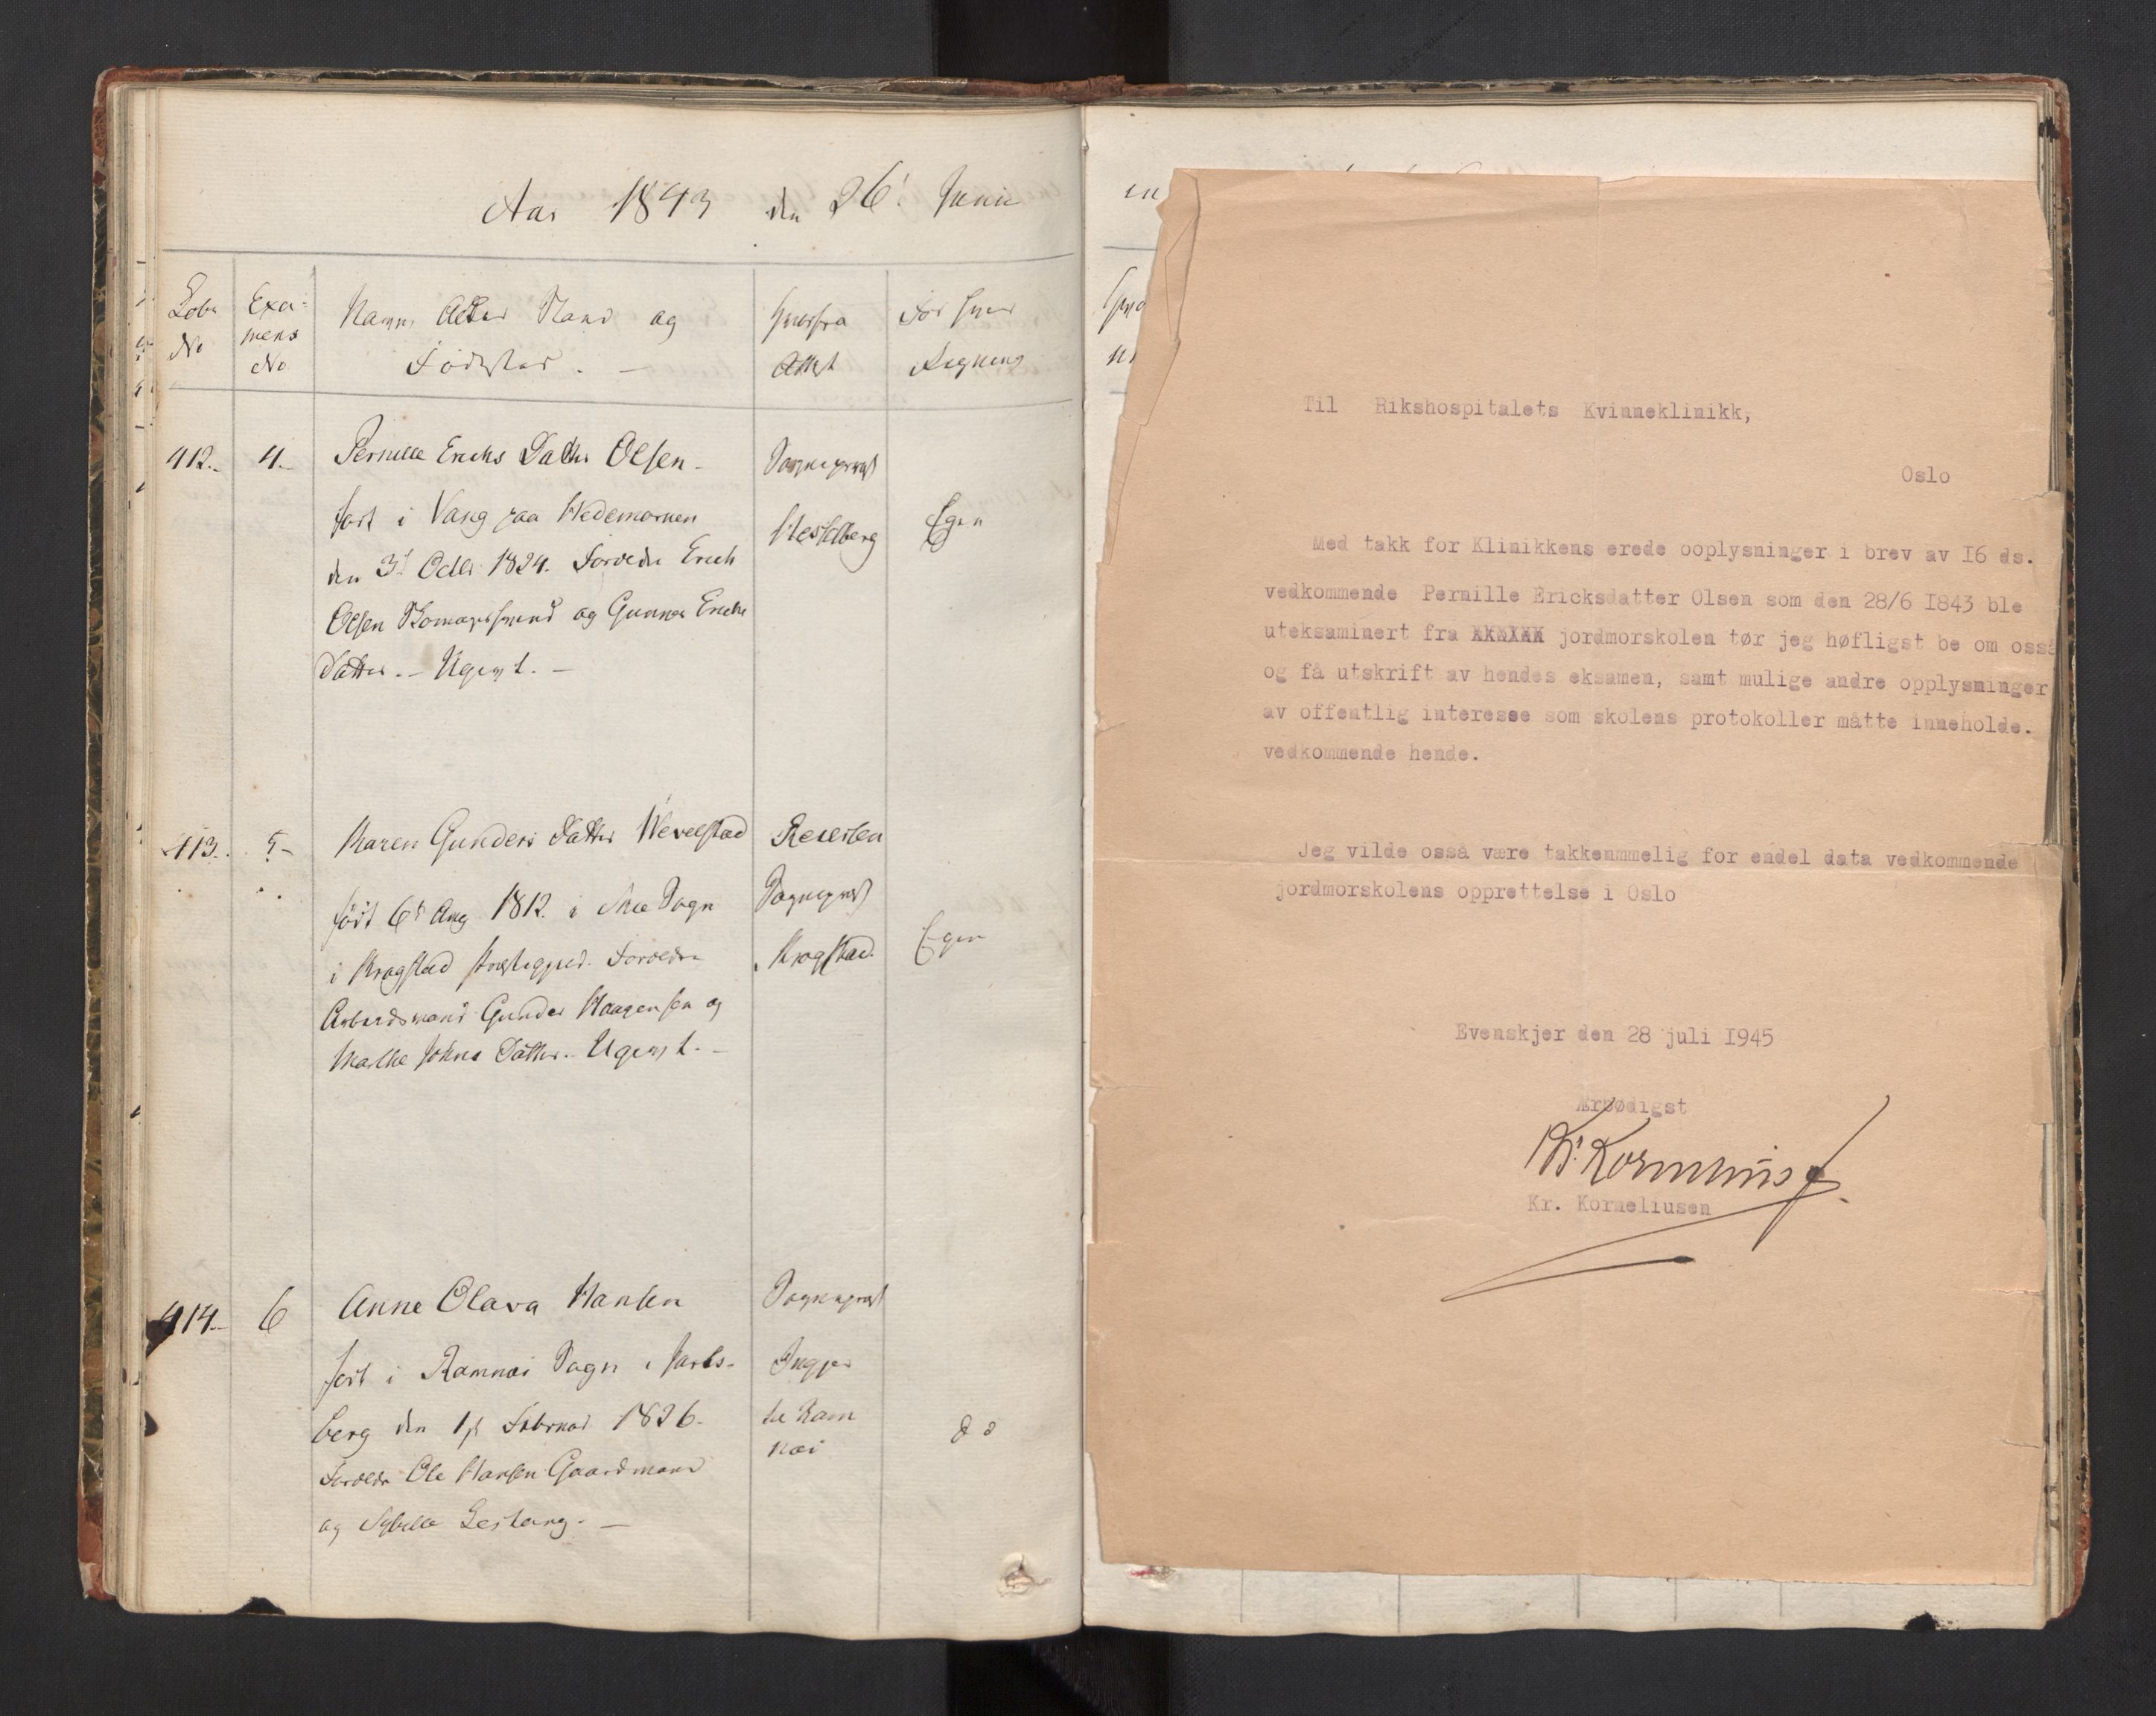 Aar 1843 den 26' Junii
Løbe No
Exa-
mens
No
Navn, Alder Stand og
Fødested. —
Hvorfra
Attest
For hvis
Regning
412.- 4.- Pernille Erichs Datter Olsen - Sognepræst
født i Vang paa Hedemarken
Hesselberg Egen
den 3' Octbr 1824. Forældre Erich
Olsen og Gunnor Erichs
Datter. - Ugivt. -
413. 5- Maren Gunders Datter Wevelstad
født 6te Aug 1812 i Skie Sogn Sognepræst
i Krogstad Præstegjeld. Forældre Krogstad. Egen
Arbeidsmand Gunder Haagensen og
Marthe Johns Datter. - Ugivt. -
414.- 6 Anne Olava Hansen Sognepræst
født i Ramnæs Sogn i Jarls-
berg den 1ste Februar 1826. til Ram
næs do
Forældre Ole Hansen Gaardmand
og Sybille
en
Til Rikshospitalets Kvinneklinikk,
Oslo
Med takk for Klinikkens erede ooplysninger i brev av I6 ds.
vedkommende Pernille Ericksdatter Olsen som den 28/6 I843 ble
uteksaminert fra XXXXXX jordmorskolen tør jeg høfligst be om osså
og få utskrift av hendes eksamen, samt mulige andre opplysninger
av offentlig interesse som skolens protokoller måtte inneholde.
vedkommende hende.
Jeg vilde osså være takkenmmelig for endel data vedkommende
jordmorskolens opprettelse i Oslo
Evenskjer den 28 juli I945
Ærbødigst
Kr. Korneliusen